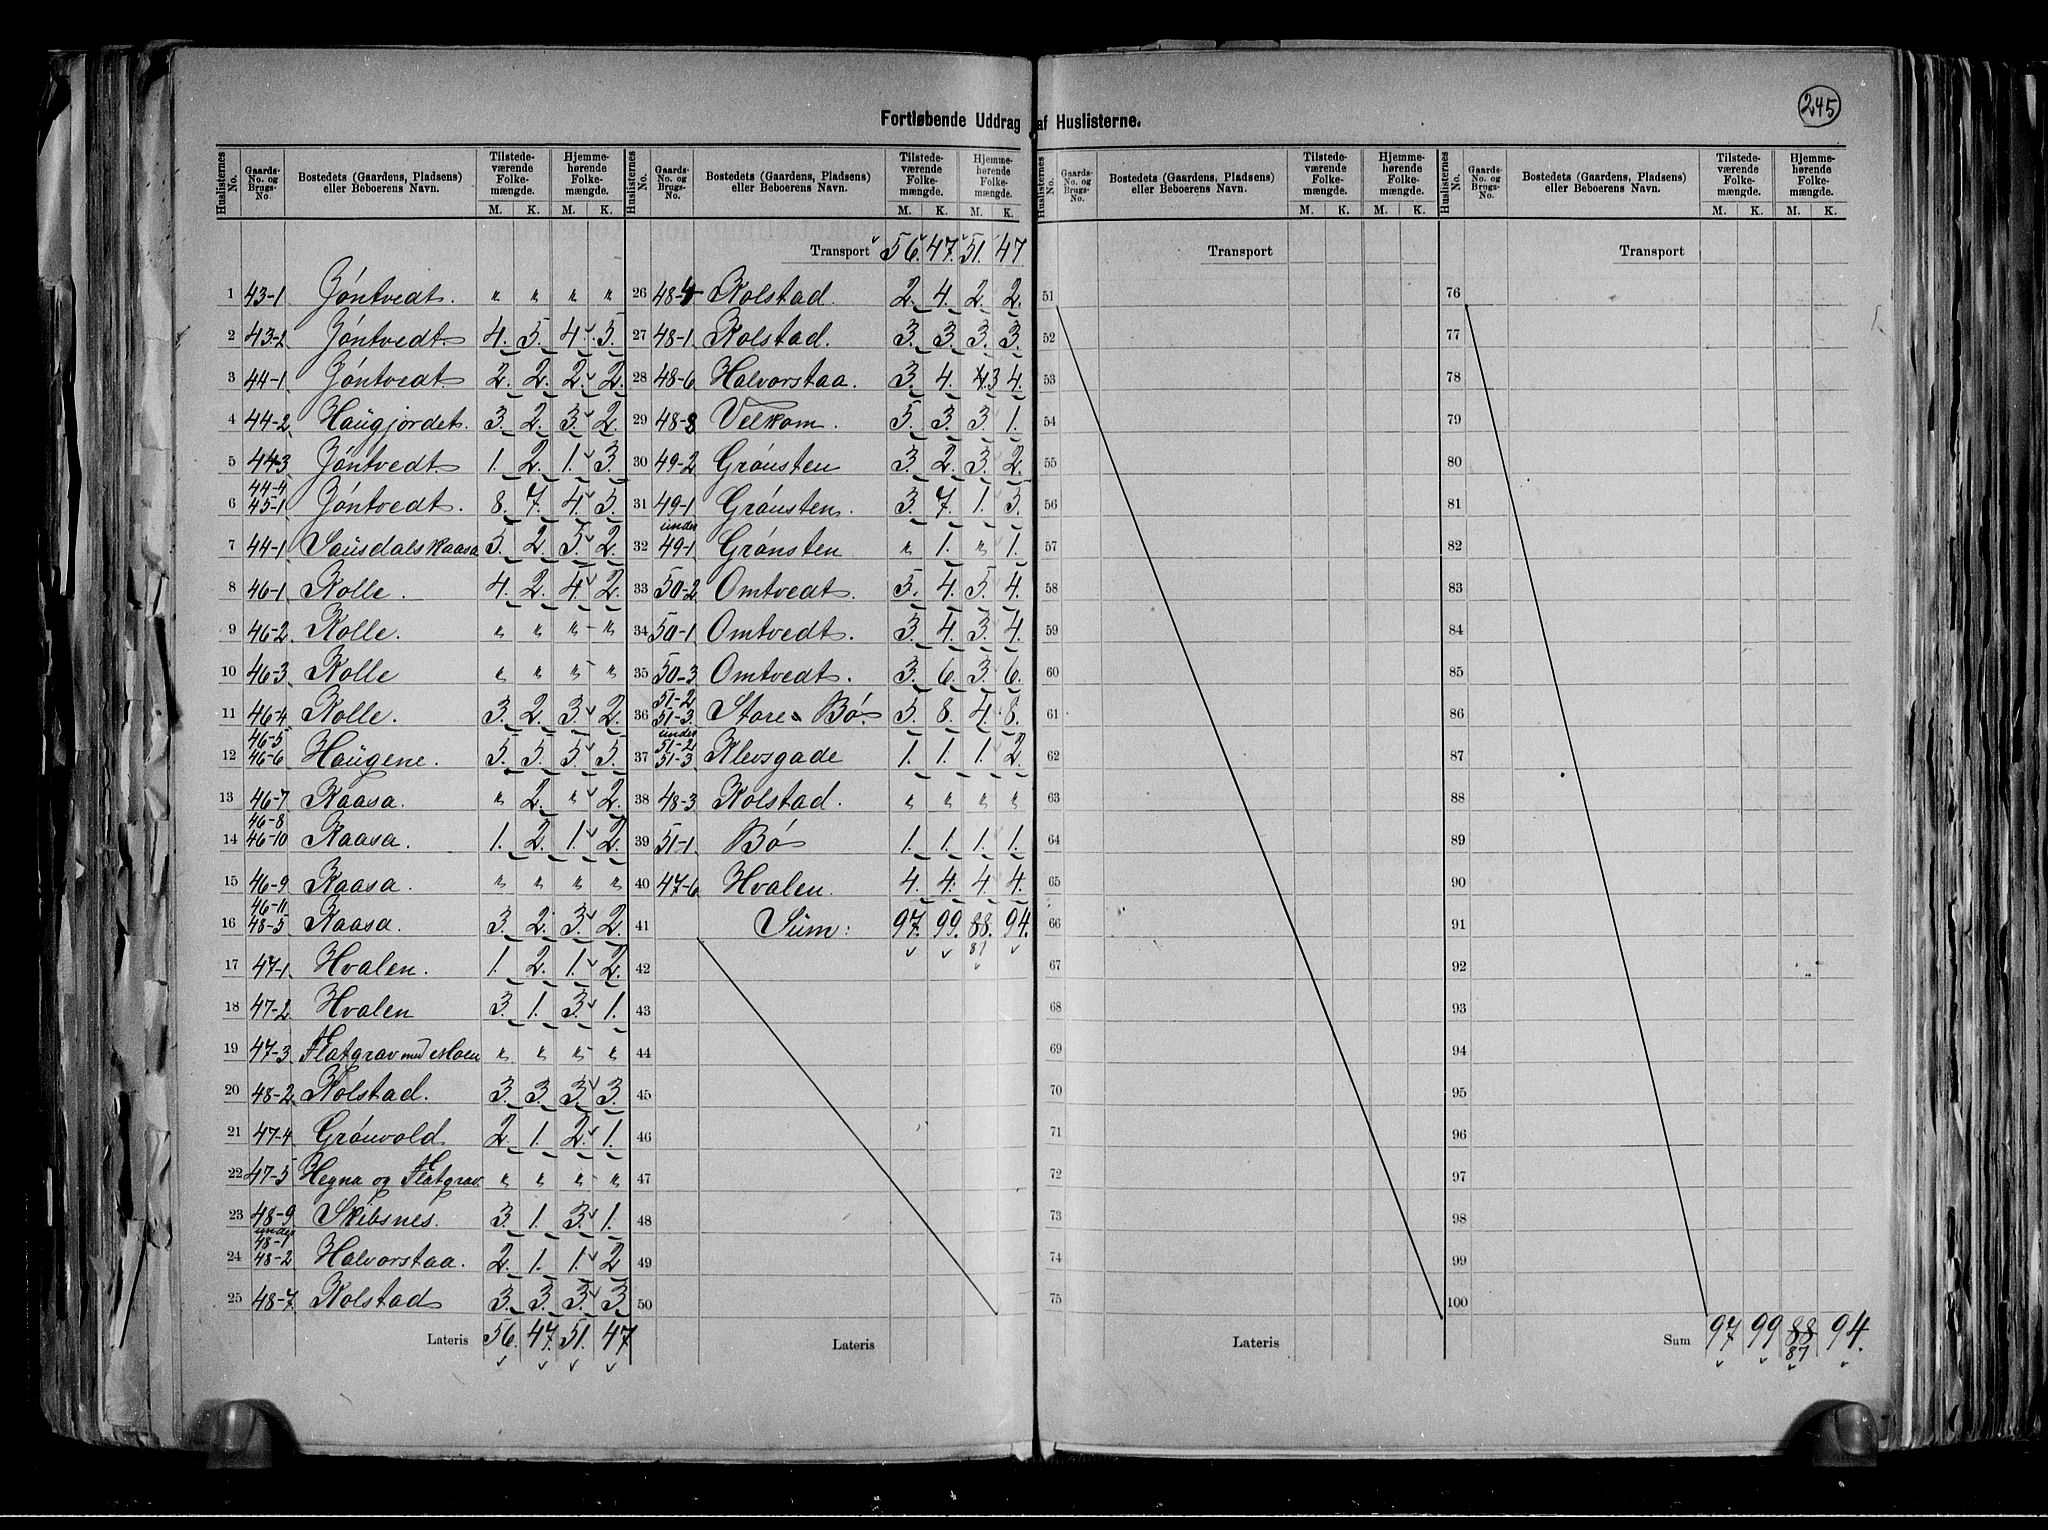 245
Fortløbende Uddrag af Huslisterne.
Huslisternes No. | Gaards-No. og Brugs-No. | Bostedets (Gaardens, Pladsens) eller Beboerens Navn. | Tilstedeværende Folkemængde. M. K. | Hjemmehørende Folkemængde. M. K.
1 43-1 Jøntvedt. " " " "
2 43-2 Jøntvedt. 4. 5. 4. 5.
3 44-1 Jøntvedt. 2. 2. 2. 2.
4 44-2 Haugjordet. 3. 2. 3. 2.
5 44-3 Jøntvedt. 1. 2. 1. 3.
6 44-4 45-1 Jøntvedt. 8. 7. 4. 5.
7 44-1 Sausdalskaasa 5. 2. 5. 2.
8 46-1 Kolle. 4. 2. 4. 2.
9 46-2 Kolle. " " " "
10 46-3 Kolle " " " "
11 46-4 Kolle. 3. 2. 3. 2.
12 46-5 46-6 Haugene. 5. 5. 5. 5.
13 46-7 Kaasa. " 2. " 2.
14 46-8 46-10 Kaasa. 1. 2. 1. 2.
15 46-9 Kaasa. " " " "
16 46-11 48-5 Kaasa. 3. 2. 3. 2.
17 47-1 Hvalen. 1. 2. 1. 2.
18 47-2 Hvalen 3. 1. 3. 1.
19 47-3 Flatgrav med Moen " " " "
20 48-2 Kolstad. 3. 3. 3. 3.
21 47-4 Grønvold 2. 1. 2. 1.
22 47-5 Hegna og Flatgrav. " " " "
23 48-9 Skibsnes. 3. 1. 3. 1.
24 under 48-1 48-2 Halvorstaa. 2. 1. 1. 2
25 48-7 Kolstad 3. 3. 3. 3
Lateris 56. 47. 51. 47
Huslisternes No. | Gaards-No. og Brugs-No. | Bostedets (Gaardens, Pladsens) eller Beboerens Navn. | Tilstedeværende Folkemængde. M. K. | Hjemmehørende Folkemængde. M. K.
Transport 56. 47. 51. 47
26 48-4 Kolstad. 2. 4. 2. 2.
27 48-1 Kolstad. 3. 3. 3. 3.
28 48-6 Halvorstaa. 3. 4. 4. 3 4.
29 48-8 Velkom. 5. 3. 3. 1.
30 49-2 Grønsten 3. 2. 3. 2.
31 49-1 Grønsten. 3. 7. 1. 5.
32 under 49-1 Grønsten " 1. " 1.
33 50-2 Omtvedt. 5. 4. 5. 4.
34 50-1 Omtvedt. 3. 4. 3. 4.
35 50-3 Omtvedt. 3. 6. 3. 6.
36 51-2 51-3. Store Bø. 5. 8. 4. 8.
37 under 51-2 51-3 Klevsgade 1. 1. 1. 2.
38 48-3 Kolstad. " " " "
39 51-1 Bø 1. 1. 1. 1.
40 47-6 Hvalen. 4. 4. 4. 4.
41 Sum: 97. 99. 88. 94.
87
42
43
44
45
46
47
48
49
50
Lateris
Huslisternes No. | Gaards-No. og Brugs-No. | Bostedets (Gaardens, Pladsens) eller Beboerens Navn. | Tilstedeværende Folkemængde. M. K. | Hjemmehørende Folkemængde. M. K.
Transport
51
52
53
54
55
56
57
58
59
60
61
62
63
64
65
66
67
68
69
70
71
72
73
74
75
Lateris
Huslisternes No. | Gaards-No. og Brugs-No. | Bostedets (Gaardens, Pladsens) eller Beboerens Navn. | Tilstedeværende Folkemængde. M. K. | Hjemmehørende Folkemængde. M. K.
Transport
76
77
78
79
80
81
82
83
84
85
86
87
88
89
90
91
92
93
94
95
96
97
98
99
100
Sum 97 99 88 94.
87